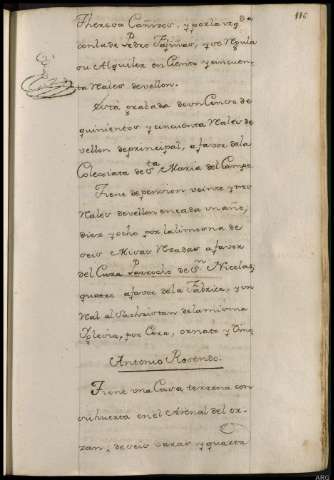 116
Theresa Cañizos, y por la izqda
con la de Pedro Fariñas, que regula
su Alquiler en Ciento y cinquen
ta Reales de vellon.
Está gravada de un Censo de
quinientos y cinquenta Reales de
vellon de principal, a favor de la
Colexiata de Sta Maria del Campo
Tiene de pension veinte y tres
Reales de vellon en cada un año,
diez y ocho por la limosna de
seis Misas Rezadas a favor
del Cura Parrocho de Sn Nicolas,
quatro a favor de la Fabrica, y un
Real al Sachristan de la misma
Yglesia, por Cera, ornato y
Antonio Rosendo.
Tiene una Casa terrena con
su huerta en el Arenal del or-
zan, de seis varas y quarta
ARG